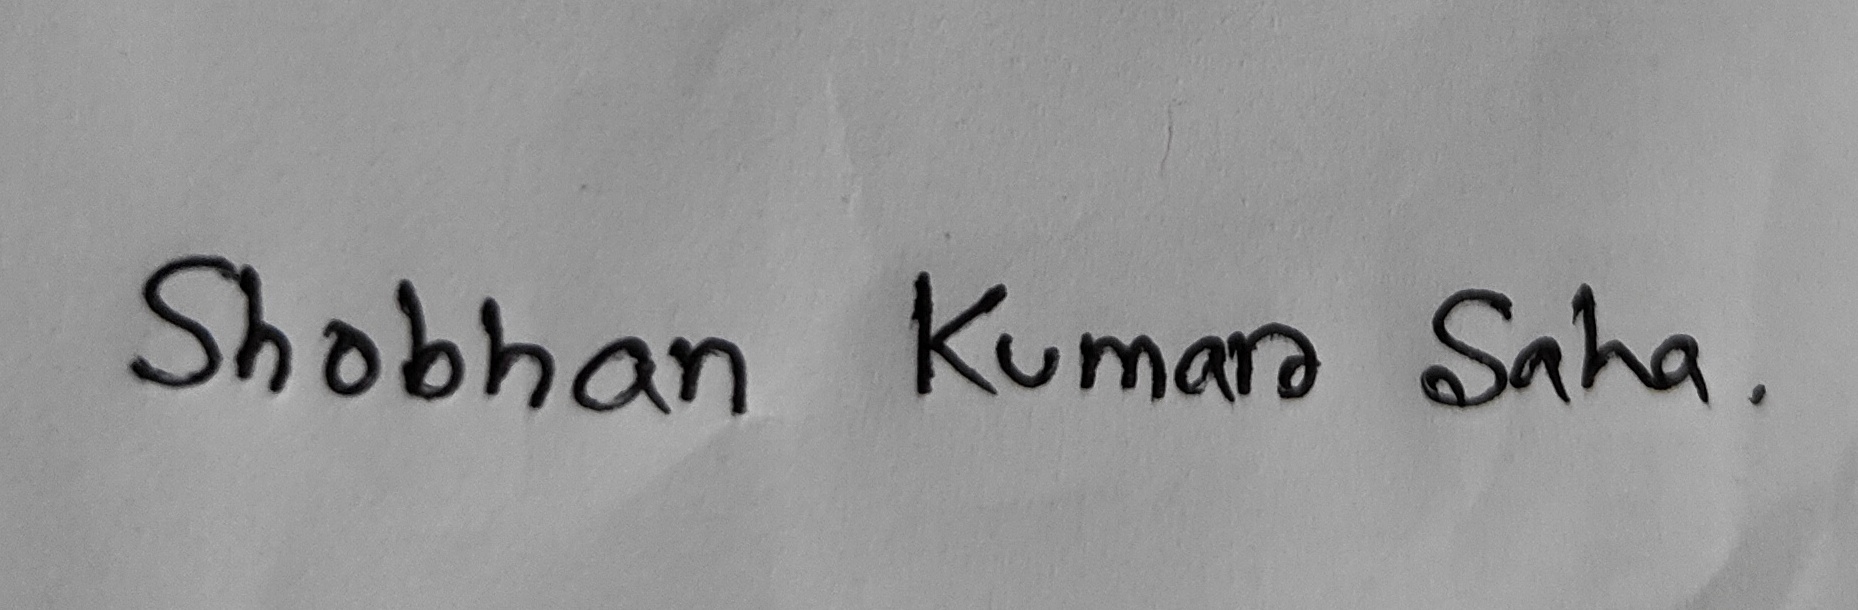 Shobhan Kumar Saha.